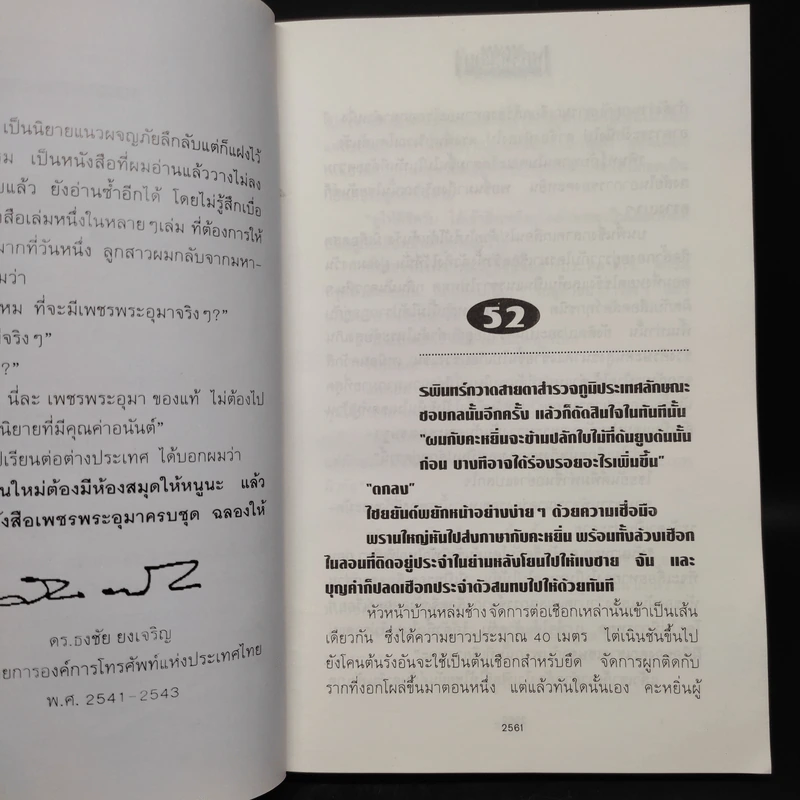 เป็นนิยายแนวผจญภัยลึกลับแต่ก็แฝงไว้
เป็นหนังสือที่ผมอ่านแล้ววางไม่ลง
แล้ว ยังอ่านซ้ำอีกได้ โดยไม่รู้สึกเบื่อ
สือเล่มหนึ่งในหลายๆเล่ม ที่ต้องการให้
มากที่วันหนึ่ง ลูกสาวผมกลับจากมหา-
มว่า
หม ที่จะมีเพชรพระอุมาจริงๆ?”
จริงๆ”
?”
นี่ละ เพชรพระอุมา ของแท้ ไม่ต้องไป
นิยายที่มีคุณค่าอนันต์”
ปเรียนต่อต่างประเทศ ได้บอกผมว่า
นใหม่ต้องมีห้องสมุดให้หนูนะ แล้ว
ังสือเพชรพระอุมาครบชุด ฉลองให้
ดร.ธงชัย ยงเจริญ
ยการองค์การโทรศัพท์แห่งประเทศไทย
พ.ศ. 2541-2543
52
รพินทร์กวาดสายตาสำรวจภูมิประเทศลักษณะ
ชอบกลนั้นอีกครั้ง แล้วก็ตัดสินใจในทันทีนั้น
"ผมกับคะหยิ่นจะข้ามปลักใบไม้ที่ต้นยูงต้นนั้น
ก่อน บางทีอาจได้ร่องรอยอะไรเพิ่มขึ้น"
"ตกลง"
ไชยยันต์พยักหน้าอย่างง่ายๆ ด้วยความเชื่อมือ
พรานใหญ่หันไปส่งภาษากับคะหยิ่น พร้อมทั้งล้วงเชือก
ไนลอนที่ติดอยู่ประจำในย่ามหลังโยนไปให้แงซาย จัน และ
บุญคำก็ปลดเชือกประจำตัวสมทบไปให้ด้วยทันที
หัวหน้าบ้านหล่มช้าง จัดการต่อเชือกเหล่านั้นเข้าเป็นเส้น
เดียวกัน ซึ่งได้ความยาวประมาณ 40 เมตร ไต่เนินชันขึ้นไป
ยังโคนต้นรังอันจะใช้เป็นต้นเชือกสำหรับยึด จัดการผูกติดกับ
รากที่งอกโผล่ขึ้นมาตอนหนึ่ง แต่แล้วทันใดนั้นเอง คะหยิ่นผู้
2561